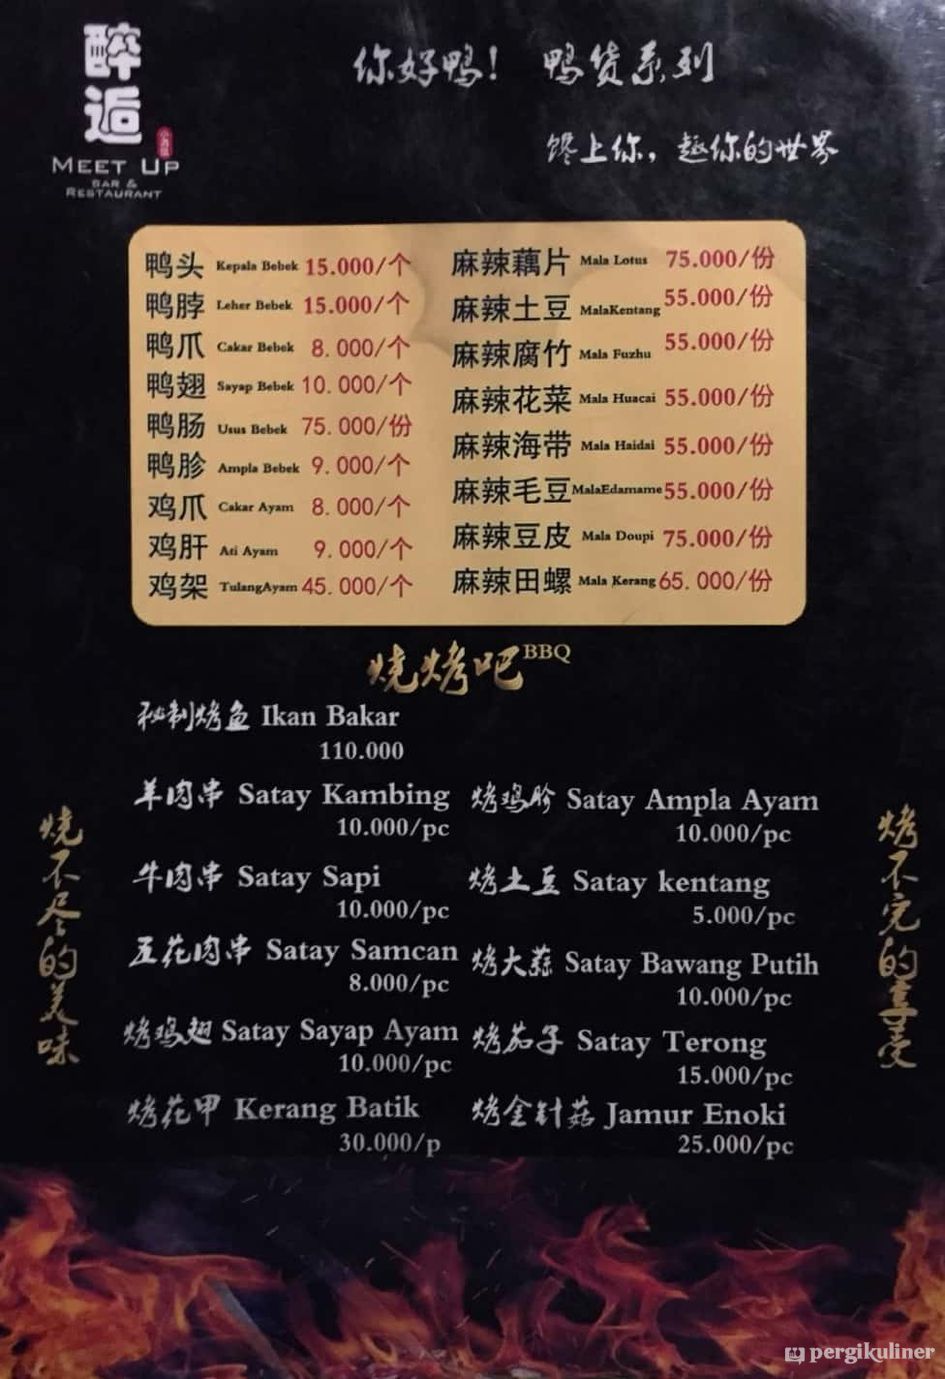 醉逅
MEET UP
BAR &
RESTAURANT
你好鸭! 鸭货系列
馋上你，趣你的世界
鸭头 Kepala Bebek 15.000/个
鸭脖 Leher Bebek 15.000/个
鸭爪 Cakar Bebek 8.000/个
鸭翅 Sayap Bebek 10.000/个
鸭肠 Usus Bebek 75.000/份
鸭胗 Ampla Bebek 9.000/个
鸡爪 Cakar Ayam 8.000/个
鸡肝 Ati Ayam 9.000/个
鸡架 TulangAyam 45.000/个
麻辣藕片 Mala Lotus 75.000/份
麻辣土豆 MalaKentang 55.000/份
麻辣腐竹 Mala Fuzhu 55.000/份
麻辣花菜 Mala Huacai 55.000/份
麻辣海带 Mala Haidai 55.000/份
麻辣毛豆 MalaEdamame 55.000/份
麻辣豆皮 Mala Doupi 75.000/份
麻辣田螺 Mala Kerang 65.000/份
燒烤吧 BBQ
秘制烤鱼 Ikan Bakar
110.000
羊肉串 Satay Kambing
10.000/pc
牛肉串 Satay Sapi
10.000/pc
五花肉串 Satay Samcan
8.000/pc
烤鸡翅 Satay Sayap Ayam
10.000/pc
烤花甲 Kerang Batik
30.000/p
烤鸡胗 Satay Ampla Ayam
10.000/pc
烤土豆 Satay kentang
5.000/pc
烤大蒜 Satay Bawang Putih
10.000/pc
烤茄子 Satay Terong
15.000/pc
烤金针菇 Jamur Enoki
25.000/pc
燒不尽的美味
烤不完的享受
pergikuliner